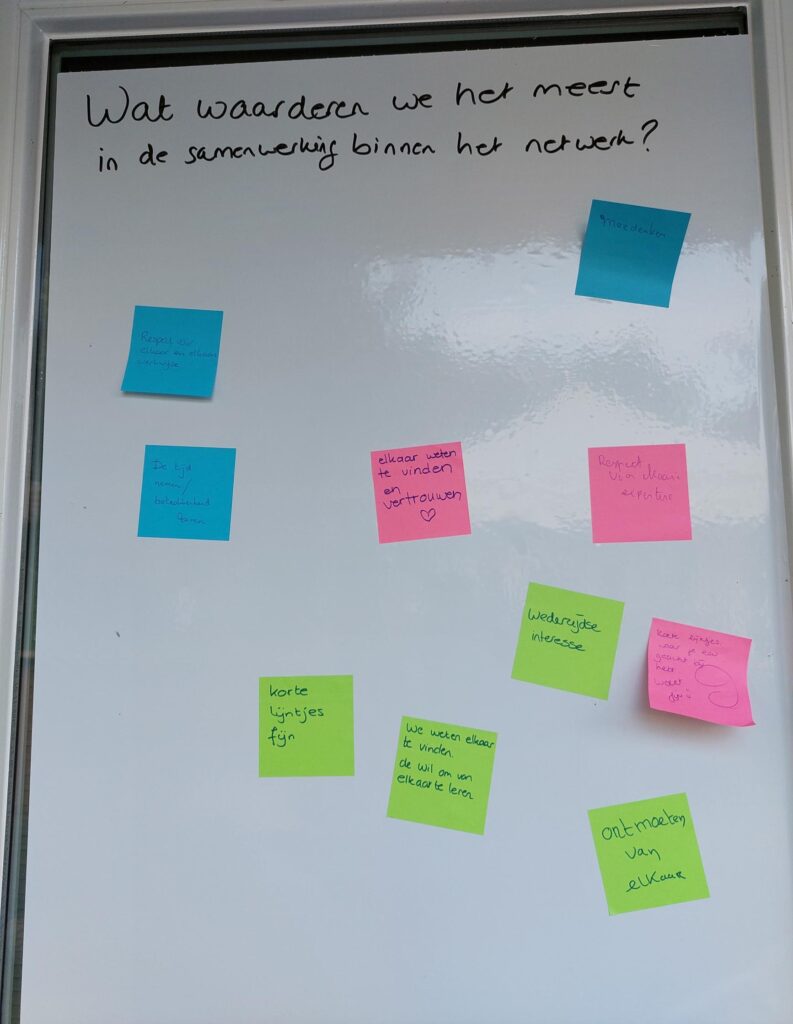 Wat waarderen we het meest
in de samenwerking binnen het netwerk?
meedenken
Respect voor
elkaar en elkaars
werkwijze
De tijd
nemen/
tonen
elkaar weten
te vinden
en
vertrouwen
♡
Respect
voor elkaars
expertise
Wederzijdse
interesse
Korte lijntjes,
waar je een
gezicht bij
hebt
werkt
fijn
korte
lijntjes
fijn
We weten elkaar
te vinden.
de wil om van
elkaar te leren
ontmoeten
van
elkaar